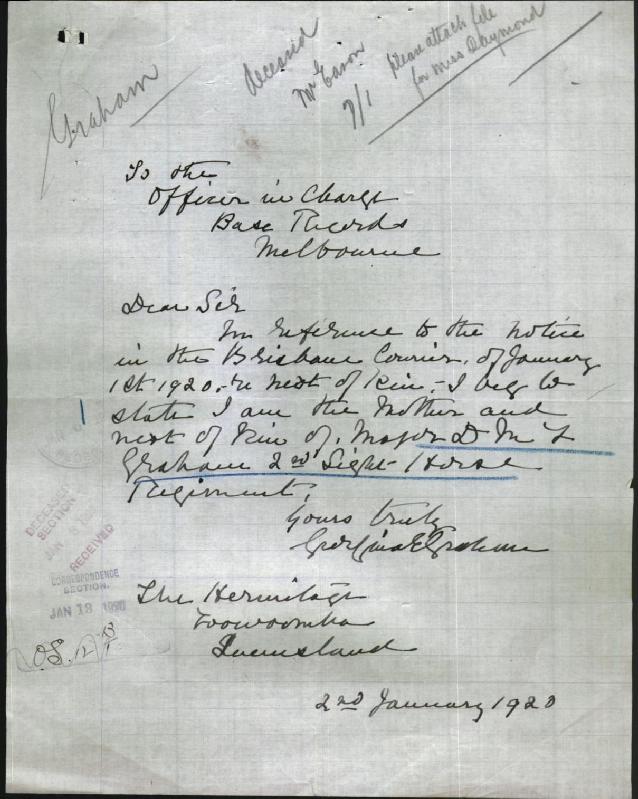 Graham
Deceased
Mr Eason
9/1
please attach file
for Miss Raymond
To the
Officer in Charge
Base Records
Melbourne
Dear Sir
In reference to the notice
in the Brisbane Courier, of January
1st 1920, re next of kin, - I beg to
state I am the Mother and
next of kin of, Major D McF
Graham 2nd Light Horse
Regiment.
Yours truly
Georgina E Graham
The Hermitage
Toowoomba
Queensland
2nd January 1920
DECEASED
SECTION
JAN
RECEIVED
CORRESPONDENCE
SECTION.
JAN 13 1920
O.S.